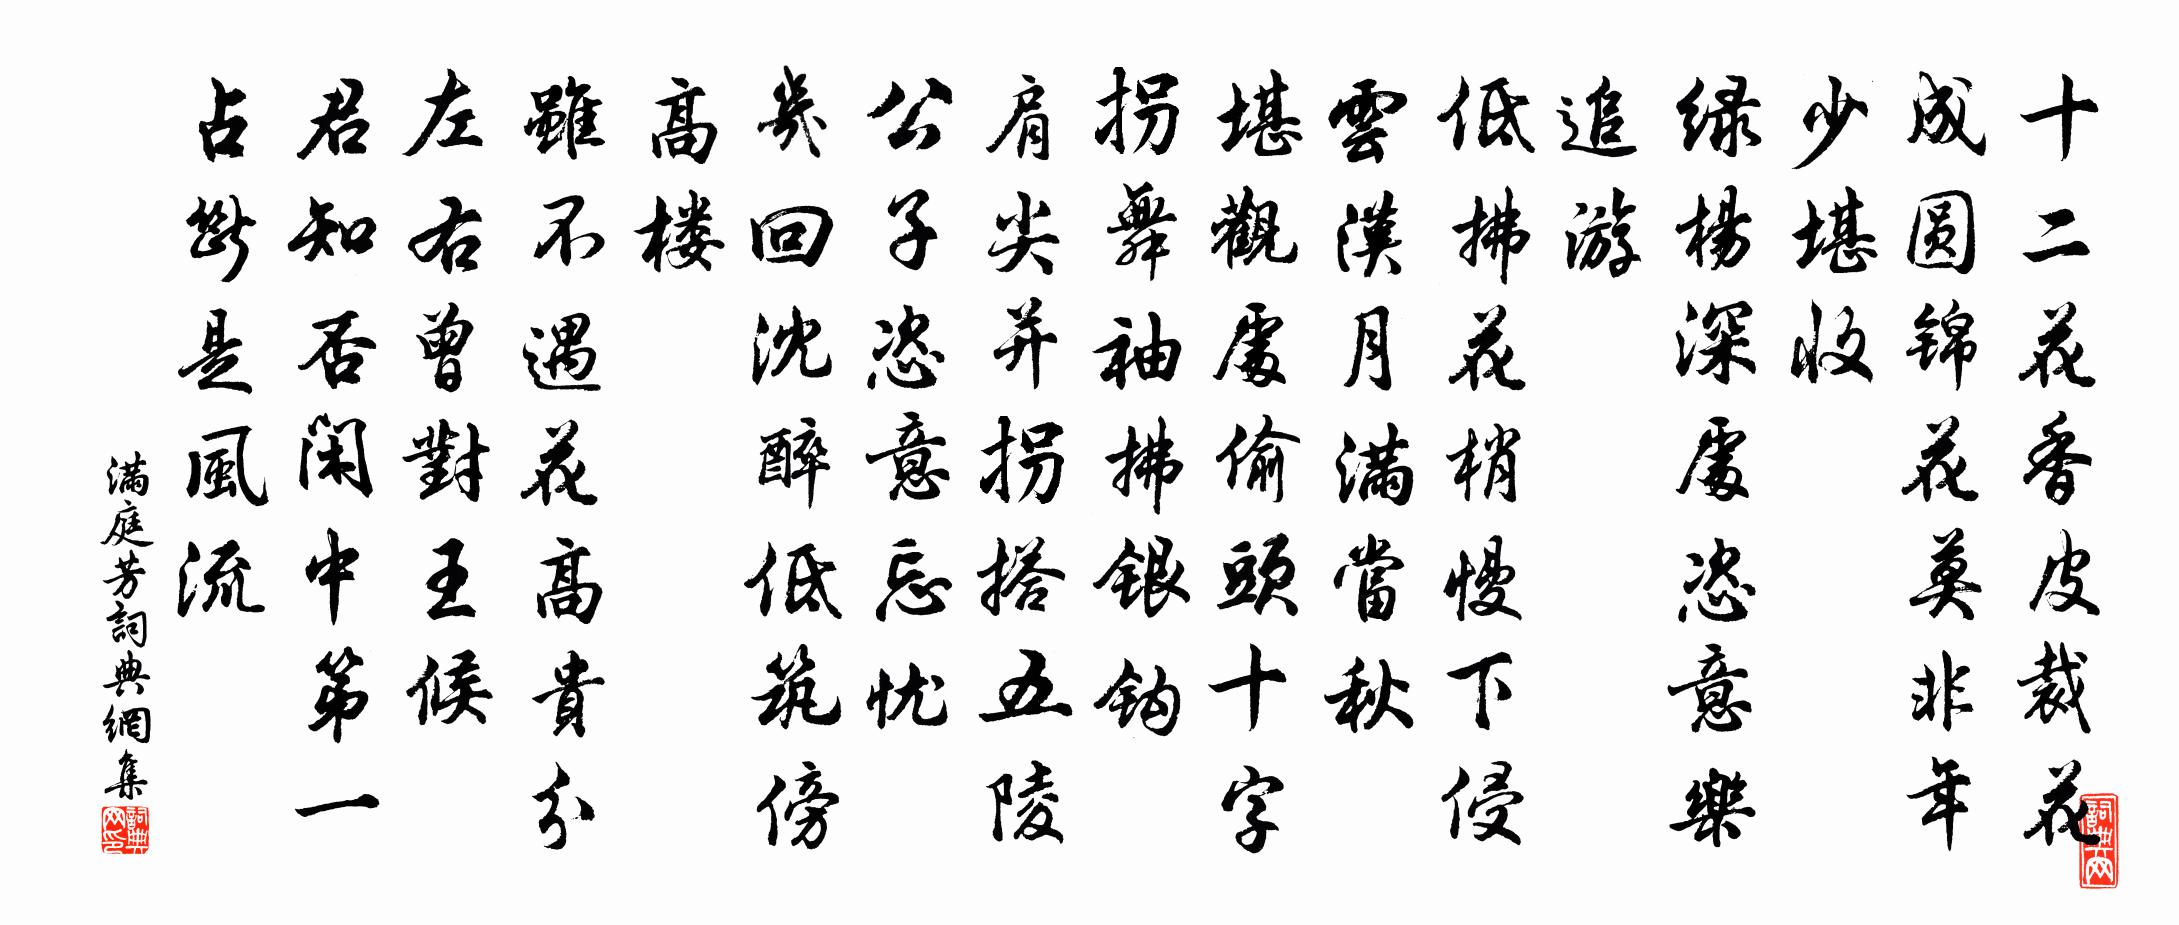 十二花香皮裁花
成圆锦花莫非年
少堪收
绿楊深處恣意樂
追游
低拂花梢慢下侵
雲漢月满當秋
堪觀處偷頭十字
拐舞袖拂銀鈎
肩尖并拐搭五陵
公子恣意忘忧
幾回沈醉低筑傍
高楼
雖不遇花高貴分
左右曾對王候
君知否闲中第一
占斷是風流
满庭芳詞典網集
詞典网
詞典网印